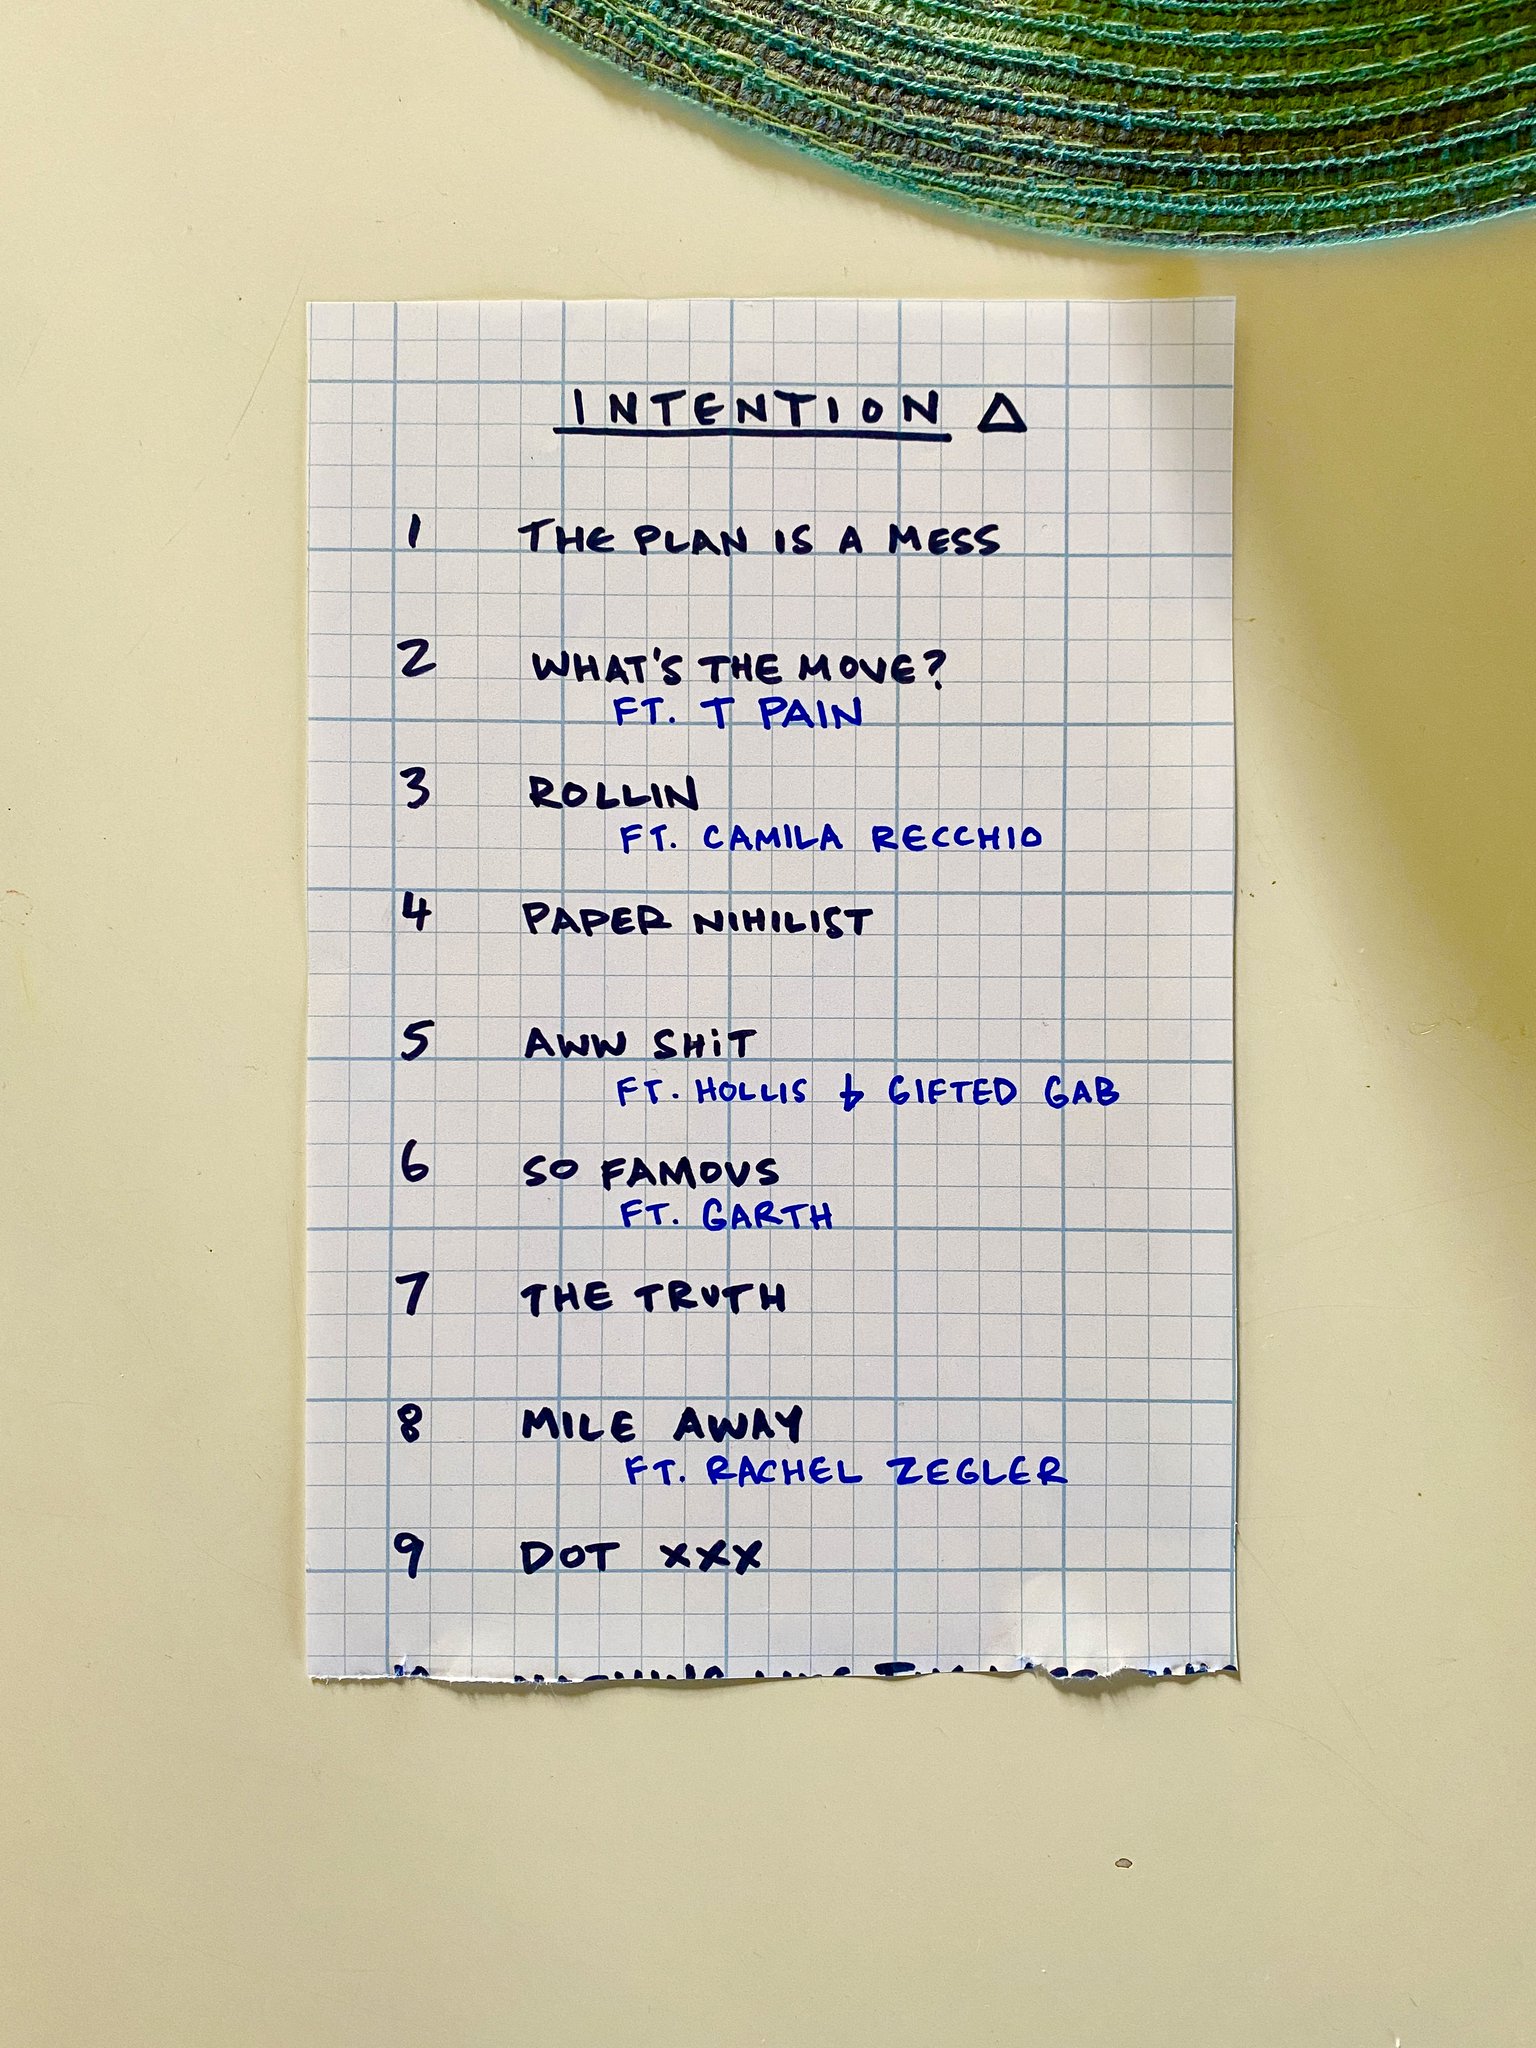 INTENTION △
1 THE PLAN IS A MESS
2 WHAT'S THE MOVE?
FT. T PAIN
3 ROLLIN
FT. CAMILA RECCHIO
4 PAPER NIHILIST
5 AWW SHiT
FT. HOLLIS & GIFTED GAB
6 SO FAMOUS
FT. GARTH
7 THE TRUTH
8 MILE AWAY
FT. RACHEL ZEGLER
9 DOT XXX